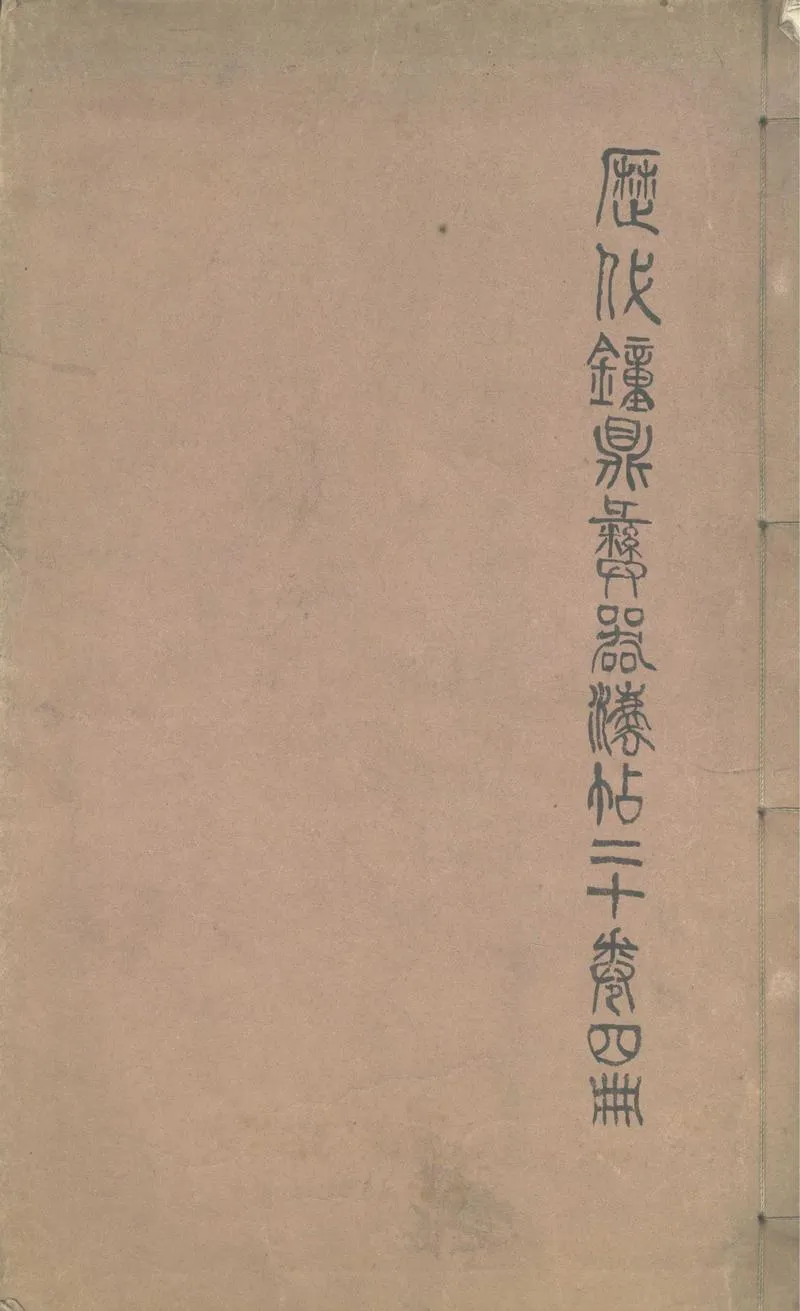 歷代鐘鼎彝器灋帖二十卷四冊